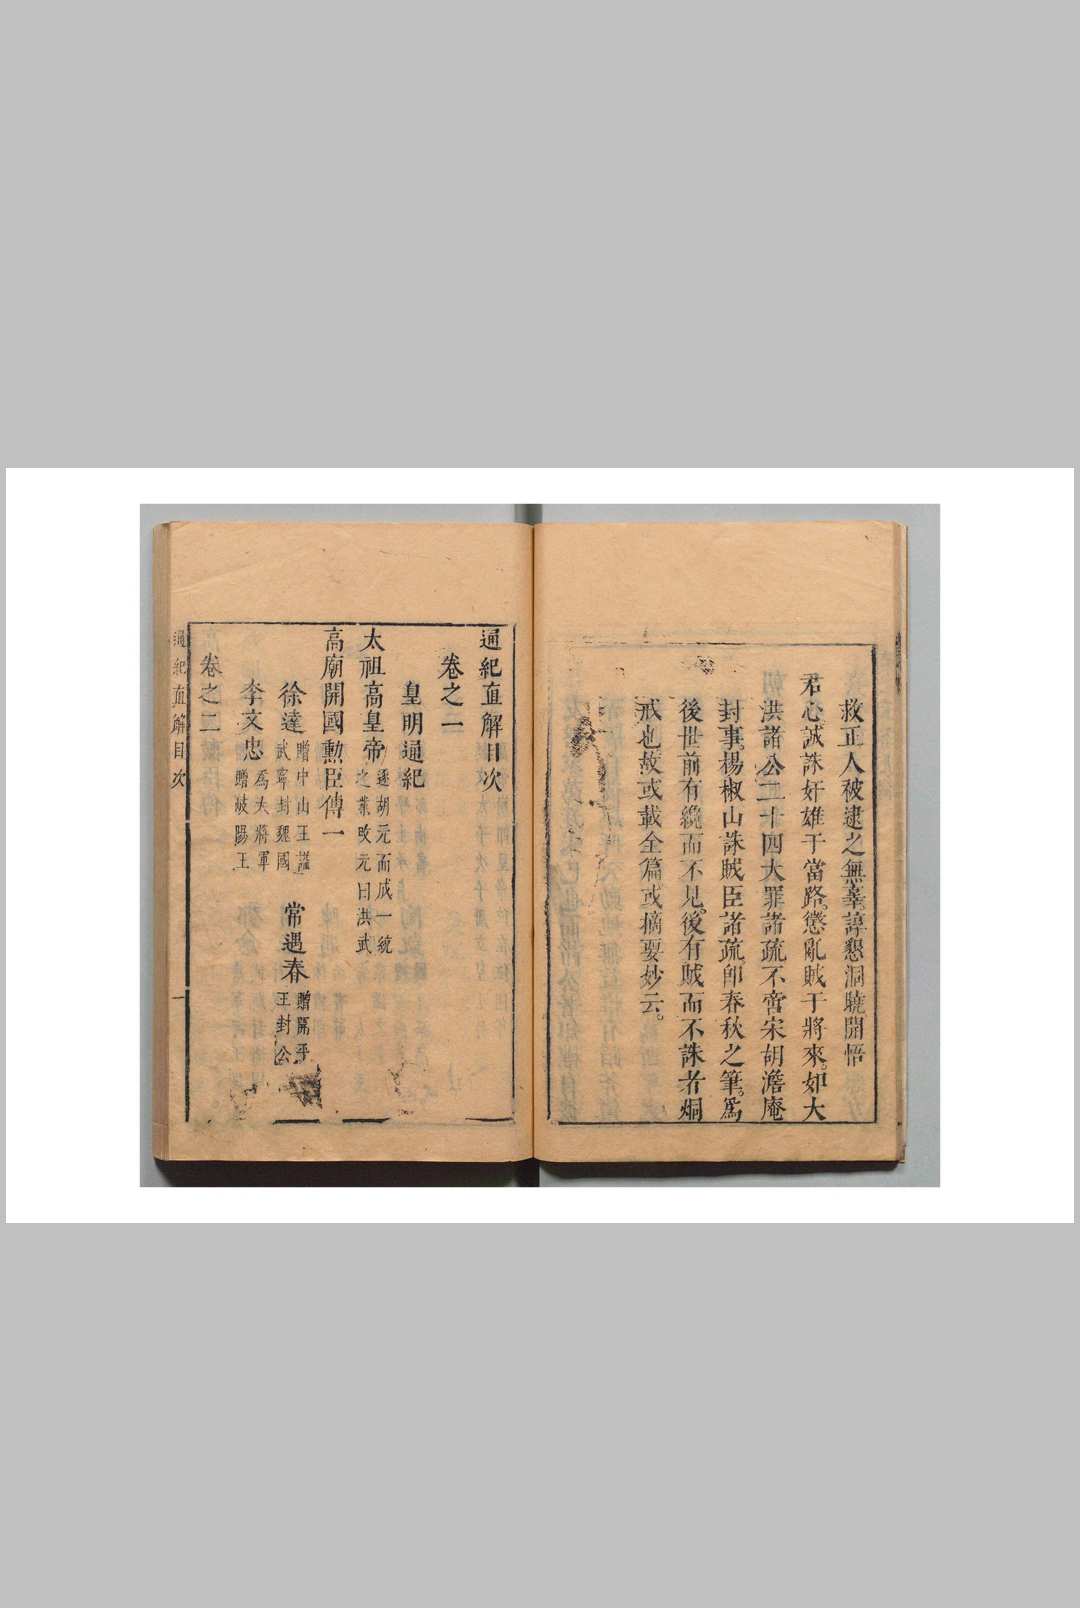 救正人被逮之無辜諄懇洞曉開悟
君心誠誅奸雄于當路懲亂賊于將來。如大
洪諸公二十四大罪諸疏不啻宋胡澹庵
封事。楊椒山誅賊臣諸疏。即春秋之筆。爲
後世前有纔而不見。後有賊而不誅者烱
戒也故或載全篇或摘要妙云。
通紀直解目次
卷之一
皇明通紀
太祖高皇帝 逐胡元而成一統之業改元曰洪武
高廟開國勳臣傳一
徐達 贈中山王謚武寧封魏國 常遇春 贈開平王封公
李文忠 爲大將軍贈岐陽王
卷之二
通紀直解目次 一